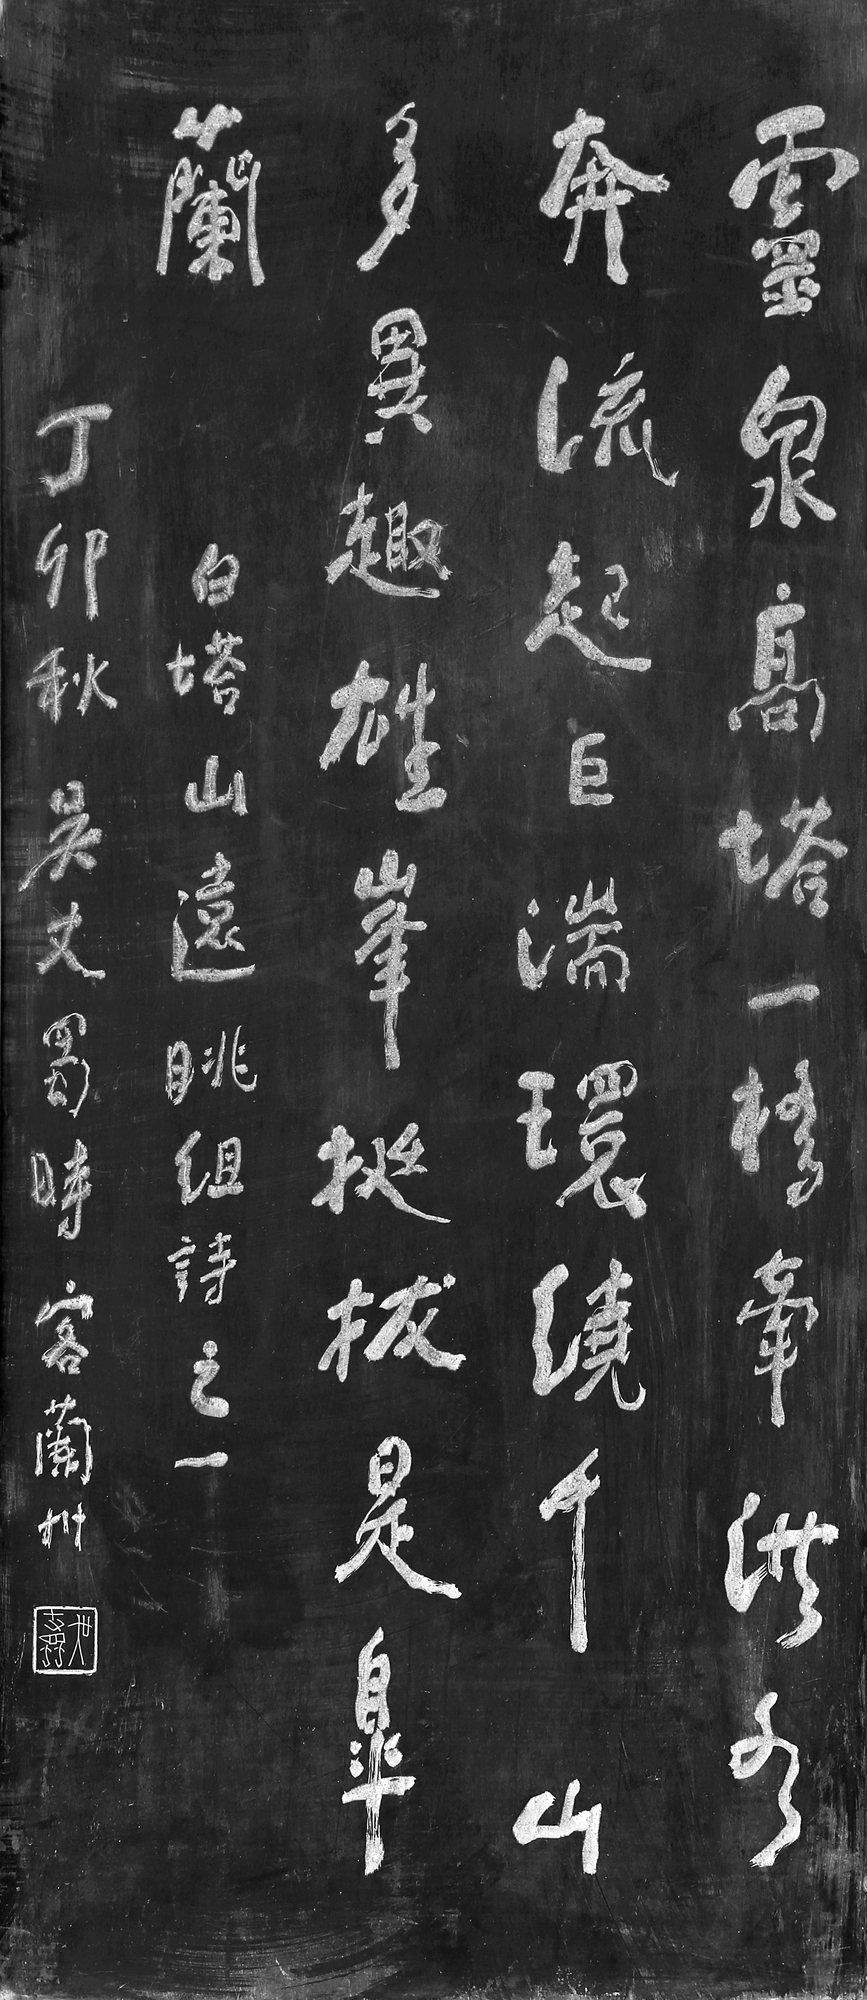 靈泉高塔一橋牽洪水
奔流起巨湍環繞千山
多異趣雄峯挺拔是皋
蘭
白塔山遠眺組詩之一
丁卯秋吳丈蜀時客蘭州